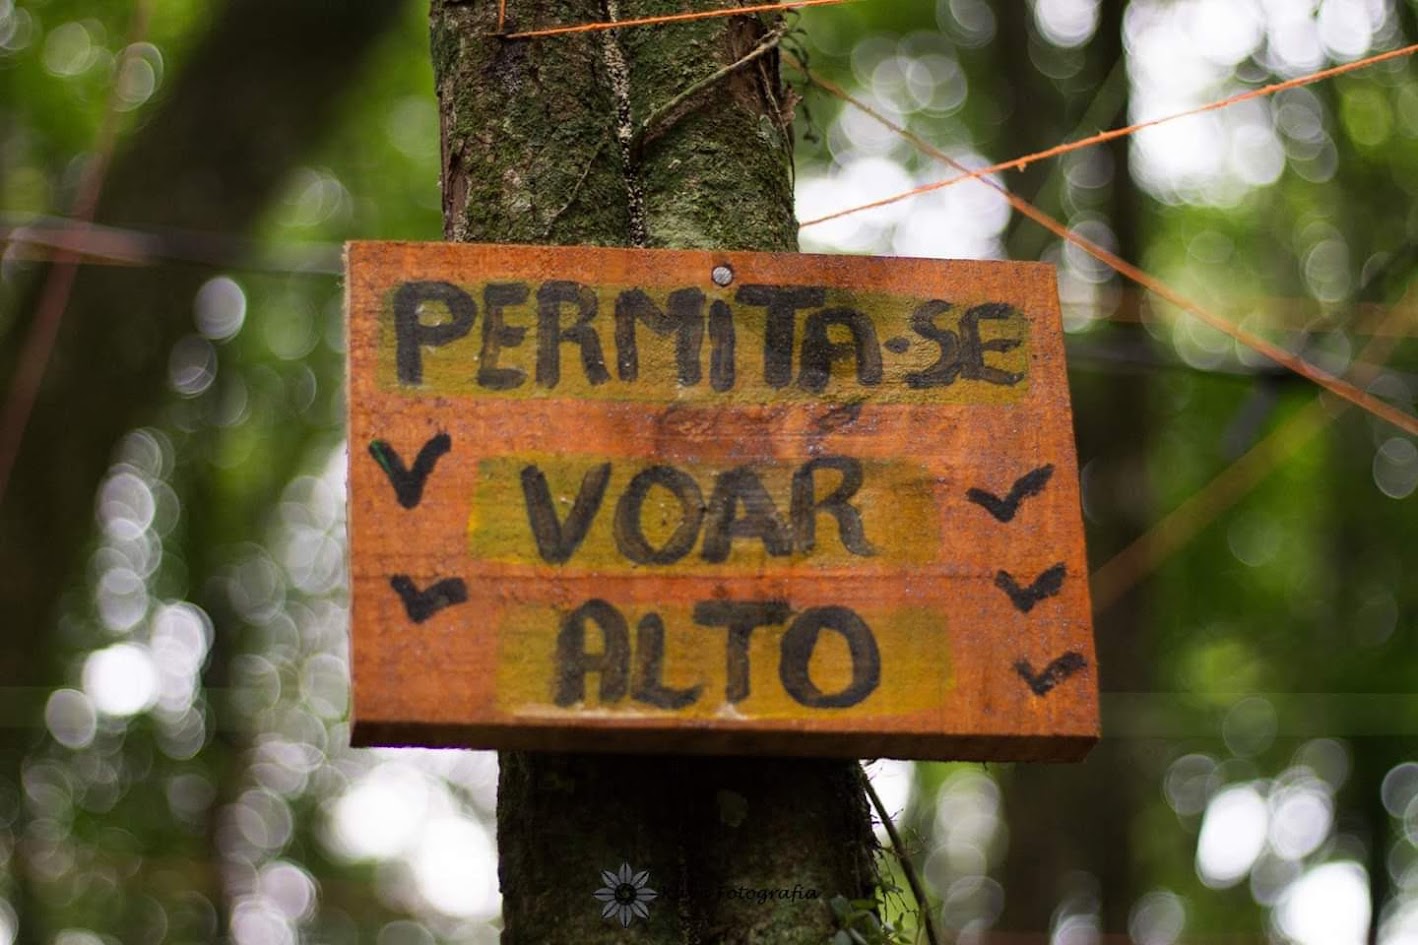 PERMITA-SE
VOAR
ALTO
Fotografia